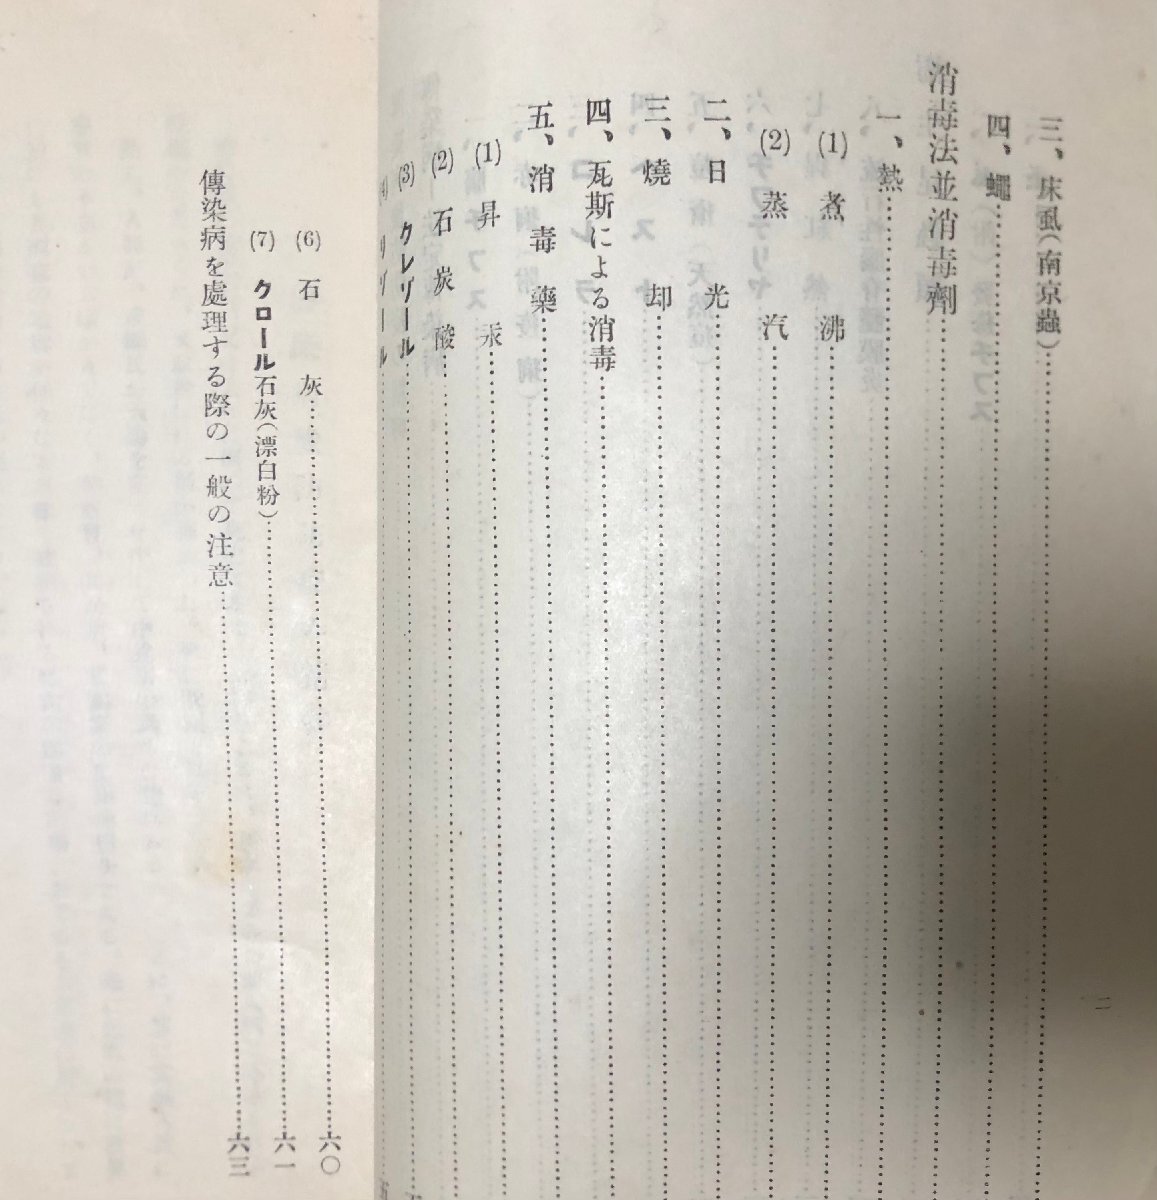 二
三、床虱(南京蟲)
四、蠅
消毒法並消毒劑
一、熱
(1) 煮沸
(2) 蒸汽
二、日光
三、燒却
四、瓦斯による消毒
五、消毒藥
(1) 昇汞
(2) 石炭酸
(3) クレゾール
(6) 石灰 六〇
(7) クロール石灰(漂白粉) 六一
傳染病を處理する際の一般の注意 六三